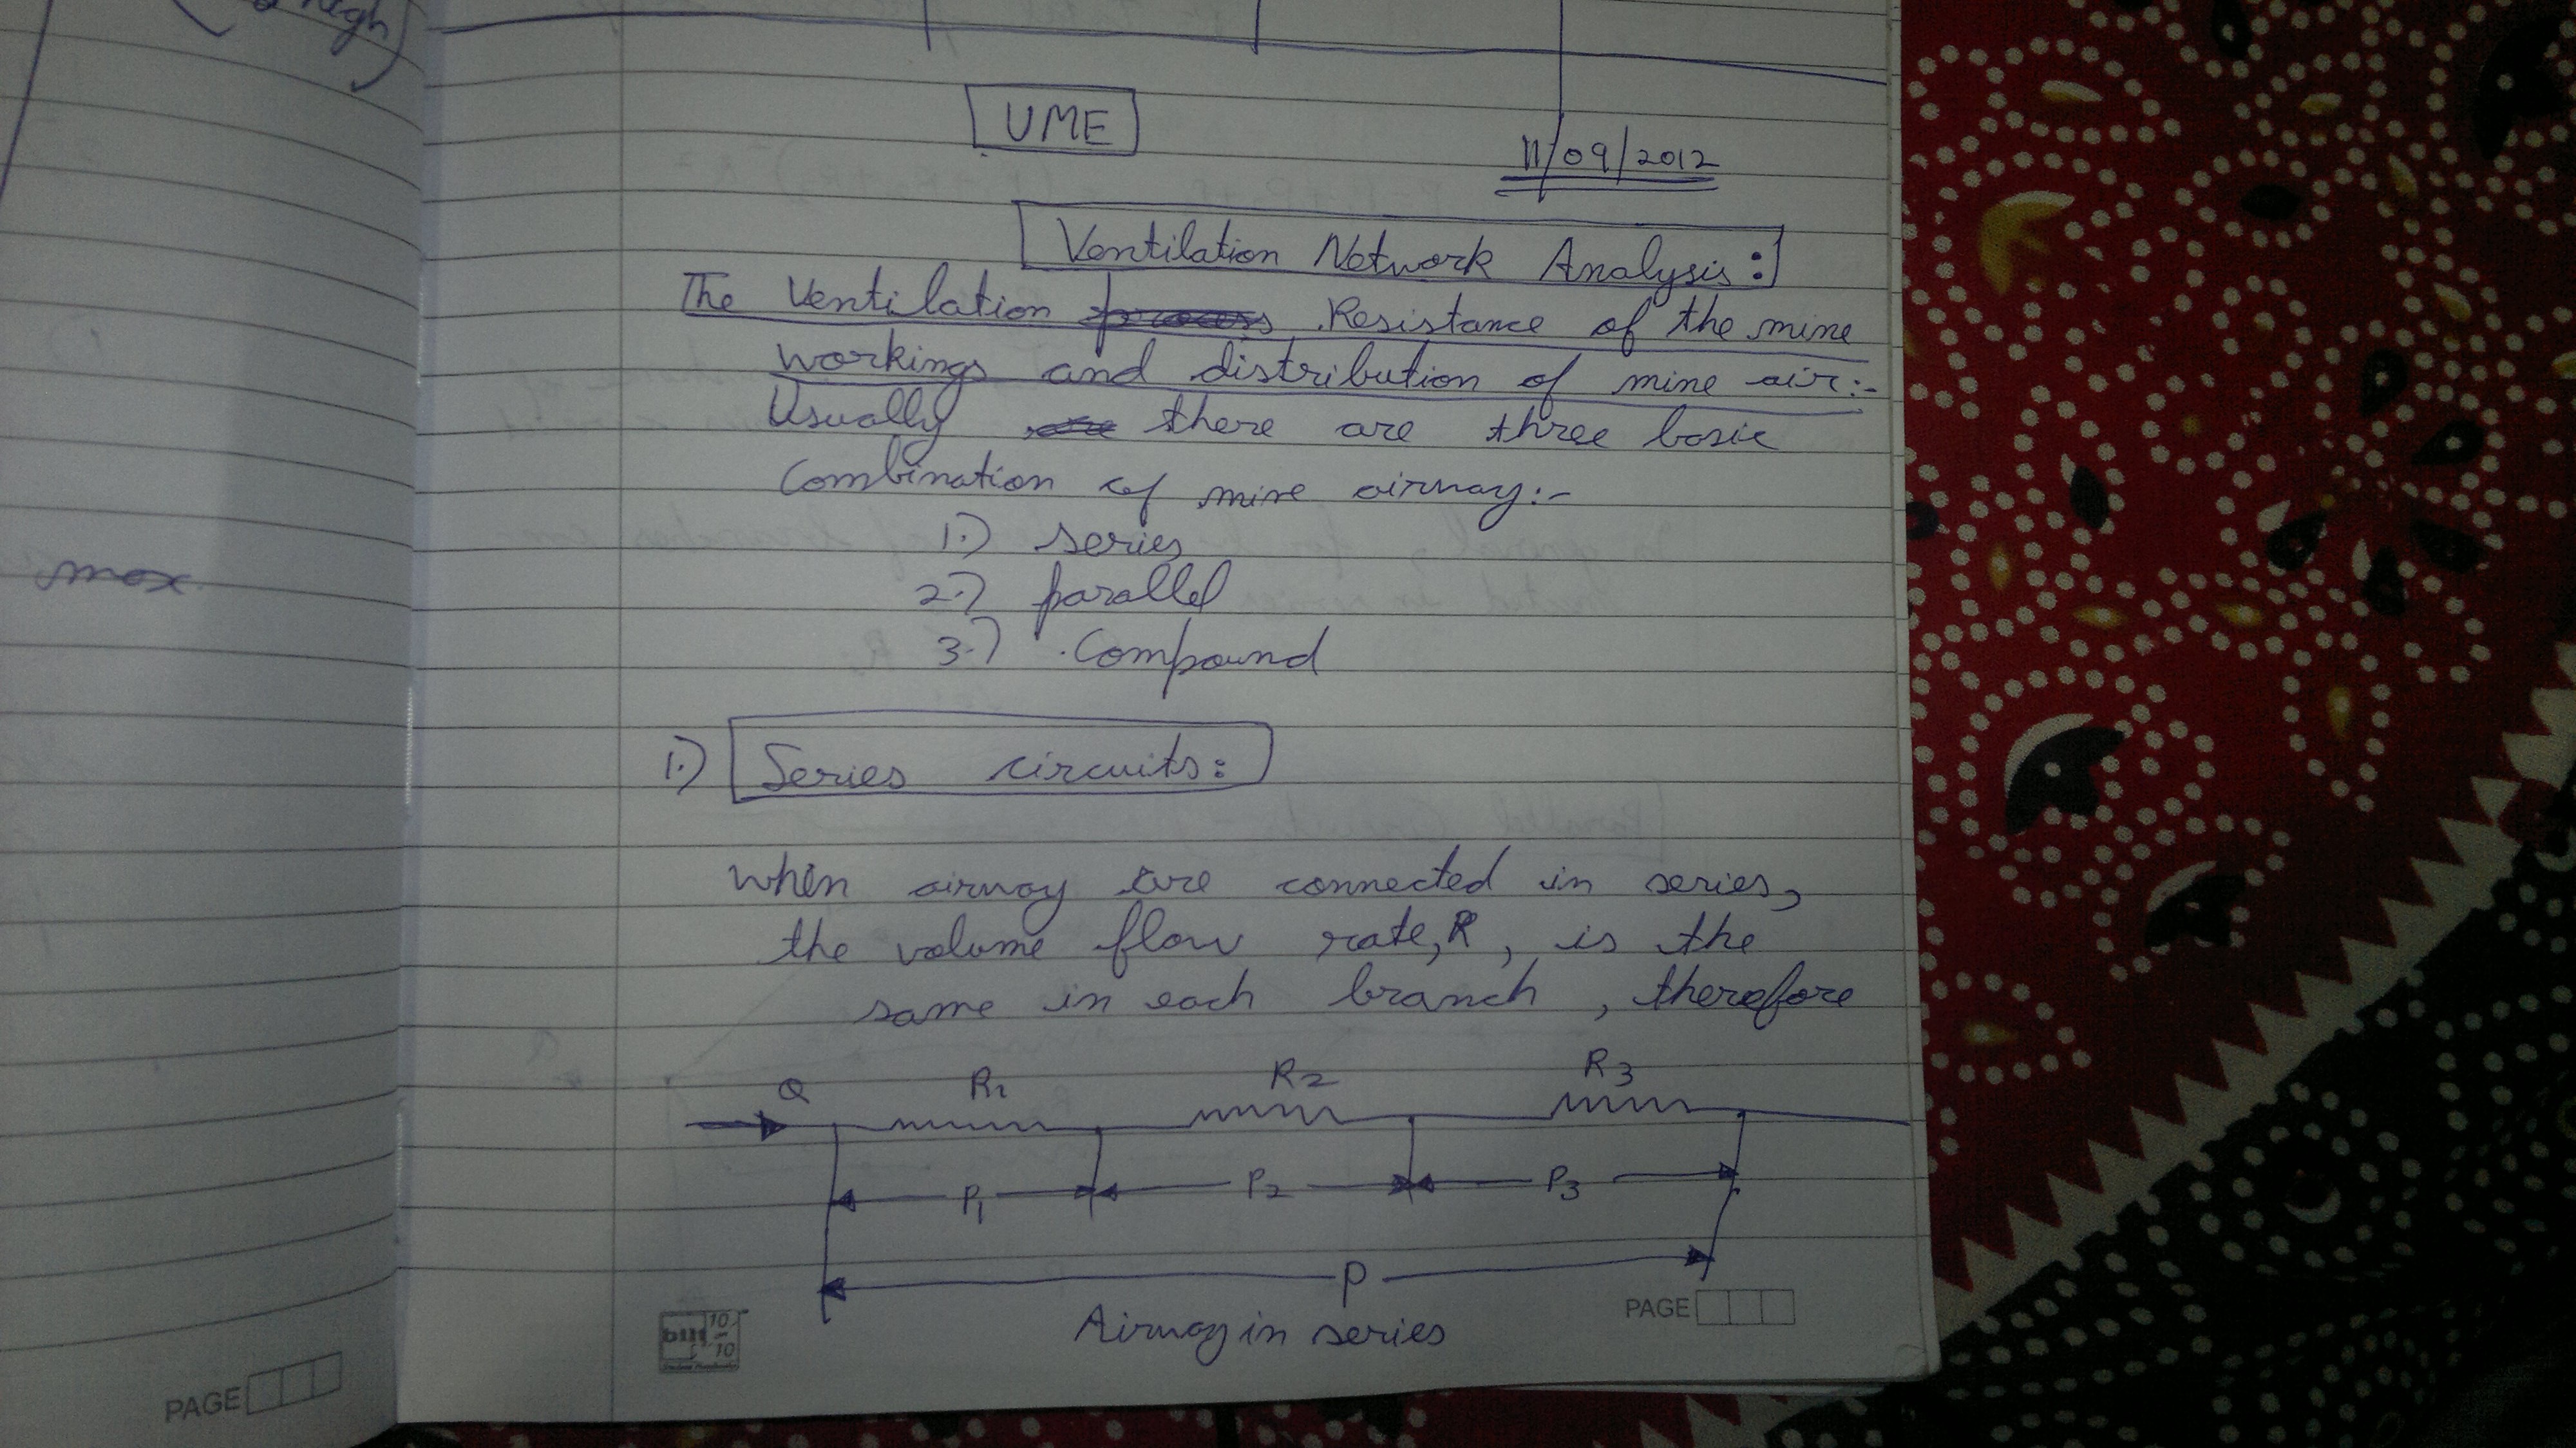 high)
max
UME
11/09/2012
Ventilation Network Analysis:
The Ventilation process Resistance of the mine
workings and distribution of mine air:-
Usually are there are three basic
Combination of mine airway:-
1.) series
2.) parallel
3.) Compound
1.) Series circuits:
When airway are connected in series,
the volume flow rate, R, is the
same in each branch, therefore
Q R1 R2 R3
P1 P2 P3
P
Airway in series
PAGE
PAGE